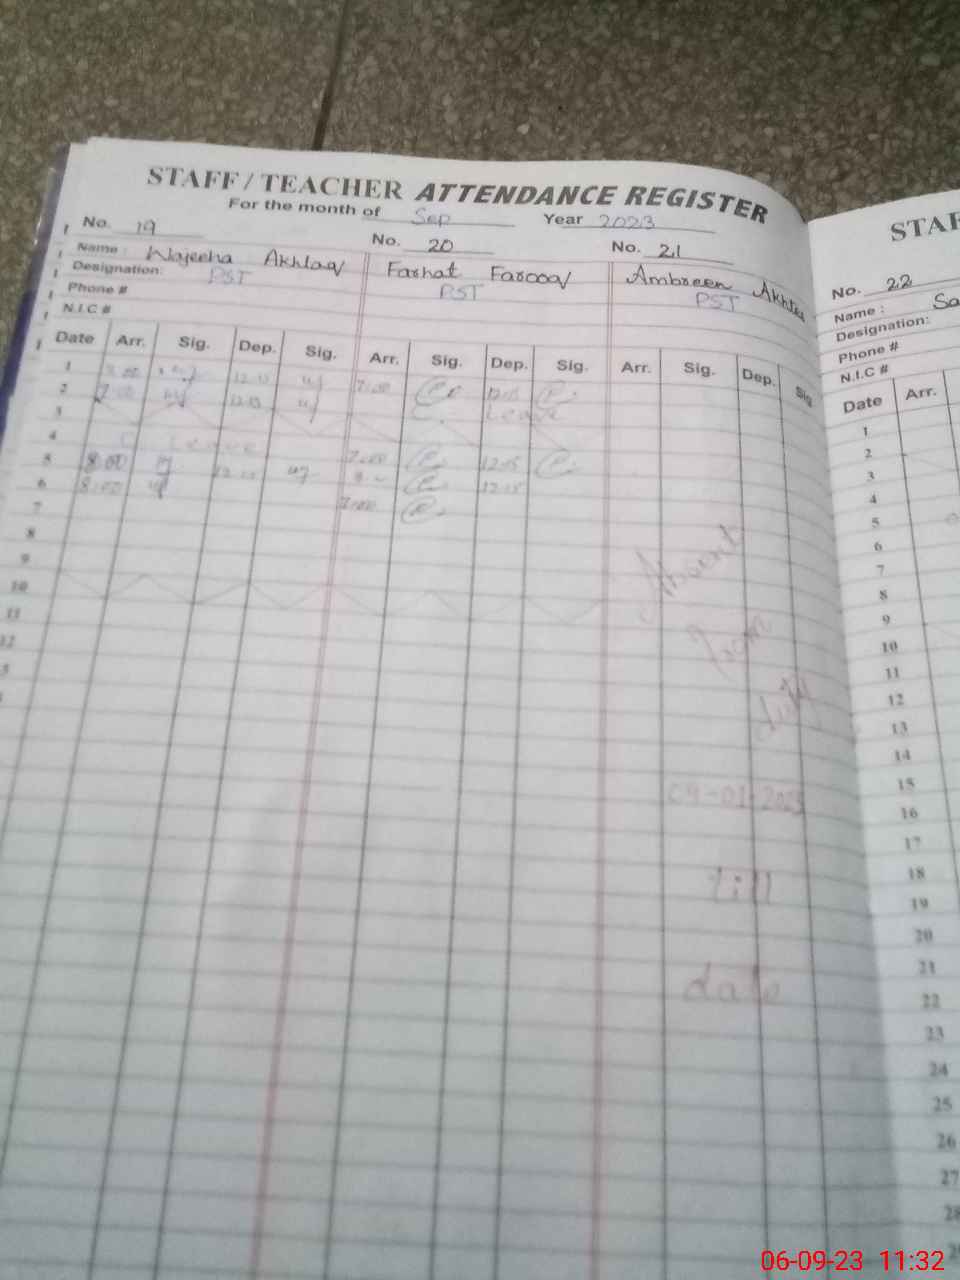 STAFF / TEACHER ATTENDANCE REGISTER
For the month of Sep Year 2023
No. 19 No. 20 No. 21
Name : Wajeeha Akhlaq Farhat Farooq Ambreen Akhter
Designation: PST PST PST
Phone #
N.I.C #
Date Arr. Sig. Dep. Sig. Arr. Sig. Dep. Sig. Arr. Sig. Dep. Sig
1 8.00 12.15 7:00
2 7:00 12.15 Leave
3
4 Leave
5 8:00 7:00 12:15
6 8:00 12:15
7 7:00
8
9
10
11
12
Absent
from
duty
till
date
STAF
No. 22
Name : Sa
Designation:
Phone #
N.I.C #
Date Arr.
1
2
3
4
5
6
7
8
9
10
11
12
13
14
15
16
17
18
19
20
21
22
23
24
25
26
27
28
06-09-23 11:32